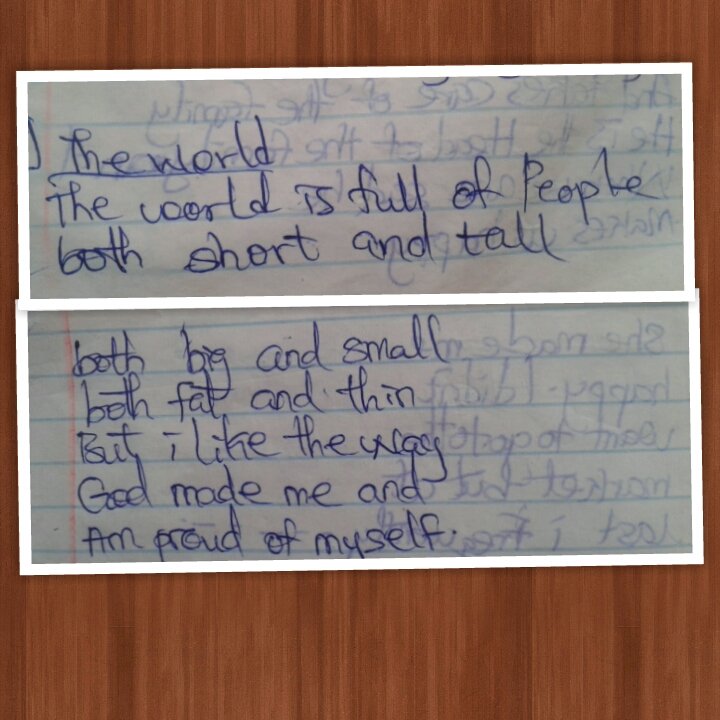 The world
The world is full of People
both short and tall
both big and small
both fat and thin
But i like the way
God made me and
Am proud of myself.